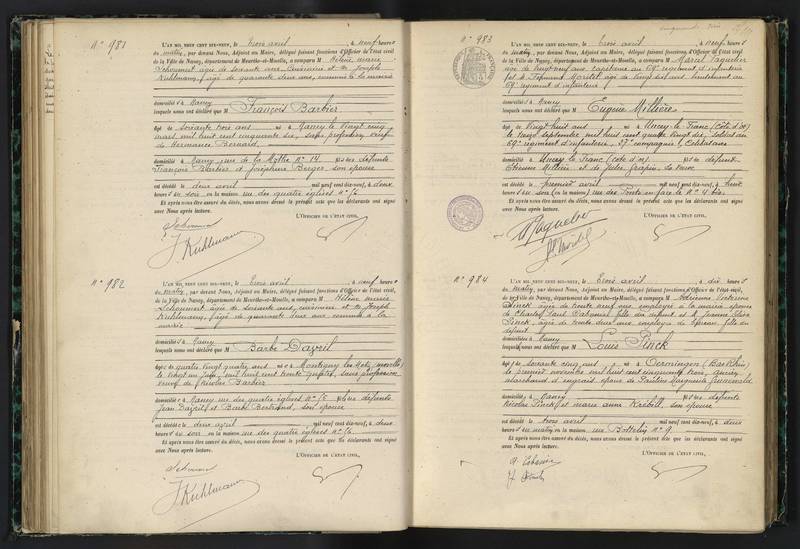 N° 981
L'AN MIL NEUF CENT DIX-NEUF, le trois avril à neuf heures
du matin, par devant Nous, Adjoint au Maire, délégué faisant fonctions d'Officier de l'état civil
de la Ville de Nancy, département de Meurthe-et-Moselle, a comparu M
Schoumert âgé de soixante ans, et Joseph
Kuhlmann, âgé de quarante deux ans, commis à la mairie
domiciliés à Nancy
lesquels nous ont déclaré que M François Barbier
âgé de soixante trois ans né à Nancy le vingt cinq
mars mil huit cent cinquante six, sans profession, veuf
de Hermance Bernard
domicilié à Nancy, rue de la Hotte n° 14 fils des défunts
François Barbier et Joséphine Berger son épouse
est décédé le deux avril mil neuf cent dix-neuf, à deux
heures du soir en la maison rue des quatre églises n° 15
Et après nous être assuré du décès, nous avons dressé le présent acte que les déclarants ont signé
avec Nous après lecture.
L'OFFICIER DE L'ÉTAT CIVIL,
J. Kuhlmann
N° 982
L'AN MIL NEUF CENT DIX-NEUF, le trois avril à neuf heures
du matin, par devant Nous, Adjoint au Maire, délégué faisant fonctions d'Officier de l'état civil
de la Ville de Nancy, département de Meurthe-et-Moselle, a comparu M
Schoumert âgé de soixante ans, et Joseph
Kuhlmann, âgé de quarante deux ans commis à la
mairie
domiciliés à Nancy
lesquels nous ont déclaré que M Barbe Dazvil
âgée de quatre vingt quatre ans née à Montigny les Metz (Moselle)
le vingt un mil huit cent trente quatre, sans profession
veuve de Nicolas Barbier
domiciliée à Nancy rue des quatre églises n° 15 fille des défunts
Jean Dazvil et Barbe Bertrand, son épouse
est décédée le deux avril mil neuf cent dix-neuf, à deux
heures du soir en la maison rue des quatre églises n° 15
Et après nous être assuré du décès, nous avons dressé le présent acte que les déclarants ont signé
avec Nous après lecture.
L'OFFICIER DE L'ÉTAT CIVIL,
J. Kuhlmann
N° 983
L'AN MIL NEUF CENT DIX-NEUF, le trois avril à neuf heures
du matin, par devant Nous, Adjoint au Maire, délégué faisant fonctions d'Officier de l'état civil
de la Ville de Nancy, département de Meurthe-et-Moselle, a comparu M Marcel Paquelier
ans capitaine au 69e régiment d'infanterie
et Moritel âgé de vingt ans, lieutenant au
69e régiment d'infanterie
domiciliés à Nancy
lesquels nous ont déclaré que M Eugène Millière
âgé de vingt huit ans né à Uncey le Franc (Côte d'Or)
le septembre mil huit cent quatre vingt dix, soldat au
69e régiment d'infanterie, 37e compagnie, célibataire
domicilié à Uncey le Franc (Côte d'Or) fils de défunt
Etienne Millière et de
est décédé le premier avril mil neuf cent dix-neuf, à huit
heures du soir en la maison rue des Ponts n° 4 bis
Et après nous être assuré du décès, nous avons dressé le présent acte que les déclarants ont signé
avec Nous après lecture.
L'OFFICIER DE L'ÉTAT CIVIL,
N° 984
L'AN MIL NEUF CENT DIX-NEUF, le trois avril à dix heures
du matin, par devant Nous, Adjoint au Maire, délégué faisant fonctions d'Officier de l'état civil,
de la Ville de Nancy, département de Meurthe-et-Moselle, a comparu M
Pinck âgée de trente neuf ans employée à la mairie épouse
de Charles Paul fille du défunt et Jeanne
Pinck, âgée de trente deux ans employée fille du
défunt
domiciliés à Nancy
lesquels nous ont déclaré que M Louis Pinck
âgé de soixante cinq ans né à Oermingen (Bas Rhin)
le premier novembre mil huit cent cinquante trois, ancien
marchand d'engrais, époux de Marguerite Grunewald
domicilié à Nancy fils des défunts
Nicolas Pinck et Marie Anne Krebill, son épouse
est décédé le trois avril mil neuf cent dix-neuf, à deux
heures du matin en la maison, rue n° 9
Et après nous être assuré du décès, nous avons dressé le présent acte que les déclarants ont signé
avec Nous après lecture.
L'OFFICIER DE L'ÉTAT CIVIL,